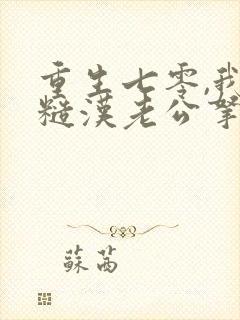 重生七零,我
糙漢老公寵
蘇茜